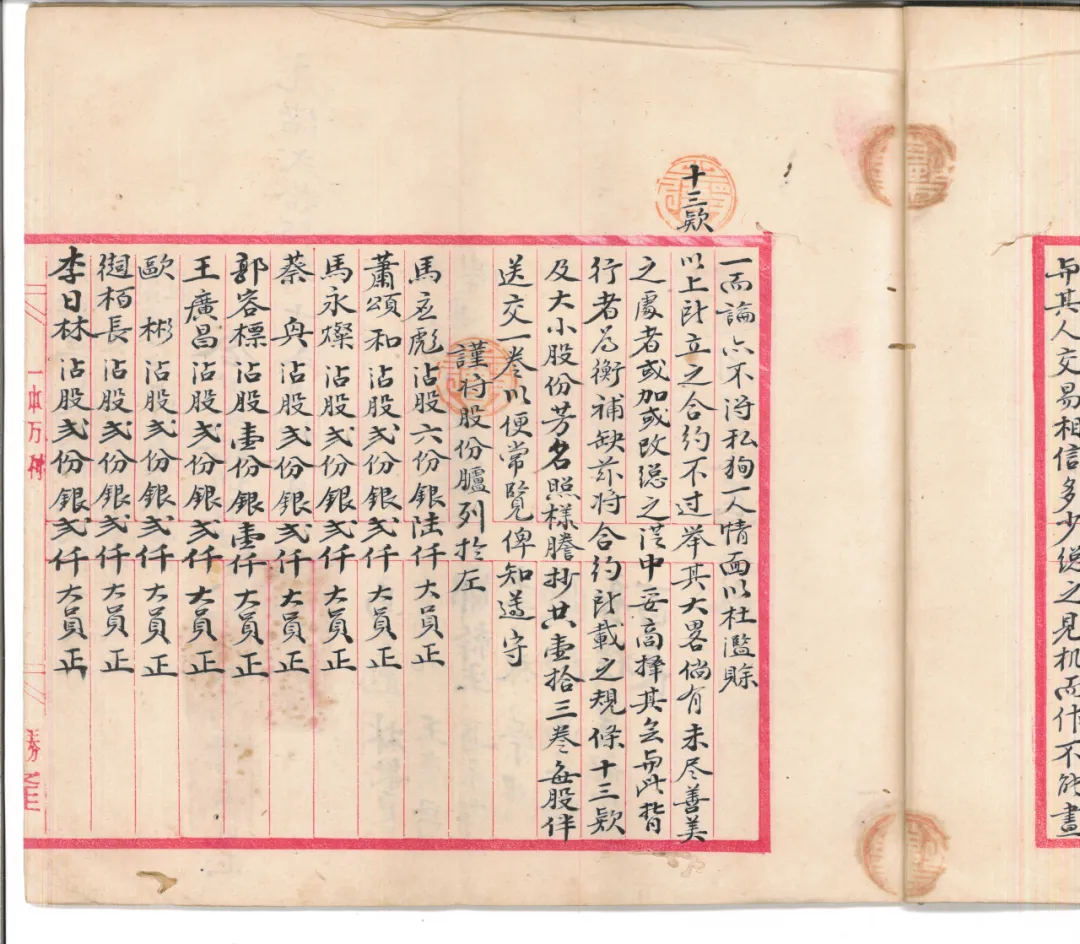 与其人交易相信多少總之見机而作不能畫
一而論亦不淂私狥一人情面以杜濫賒
十三欵
以上所立之合約不过举其大畧倘有未尽善美
之處者或加或改總之從中妥商擇其
行者為衡補缺茲将合約所載之規條十三欵
及大小股份芳名照樣謄抄共壹拾三卷每股伴
送交一卷以便常覽俾知遵守
謹将股份臚列於左
馬立彪沾股六份銀陸仟大員正
蕭頌和沾股弍份銀弍仟大員正
馬永燦沾股弍份銀弍仟大員正
蔡 沾股弍份銀弍仟大員正
郭容標沾股壹份銀壹仟大員正
王廣昌沾股弍份銀弍仟大員正
歐彬沾股弍份銀弍仟大員正
栢長沾股弍份銀弍仟大員正
李日林沾股弍份銀弍仟大員正
一本万利